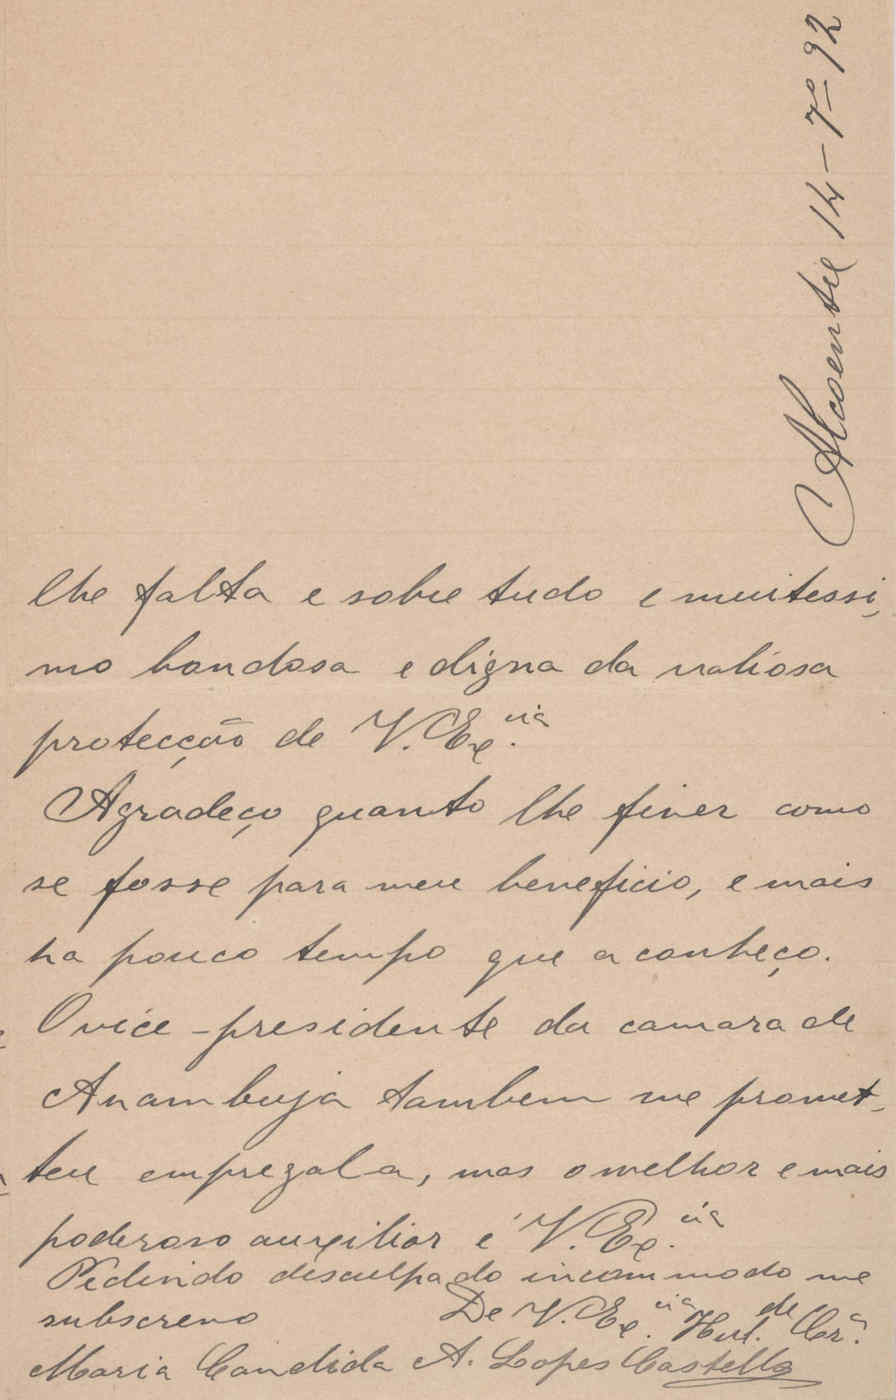 Alcoentre 14-7º-92
lhe falta e sobre tudo e muitessi,
mo bondosa e digna da valiosa
protecção de V. Ex.cia
Agradeço quanto lhe fizer como
se fosse para meu beneficio, e mais
ha pouco tempo que a conheço.
O vice-presidente da camara de
Azambuja tambem me promet,
teu empregala, mas o melhor e mais
poderoso auxilior é V. Ex.cia
Pedindo desculpa do incommodo me
subscrevo De V. Ex.cia Hul.de Cr.ª
Maria Candida A. Lopes Castello